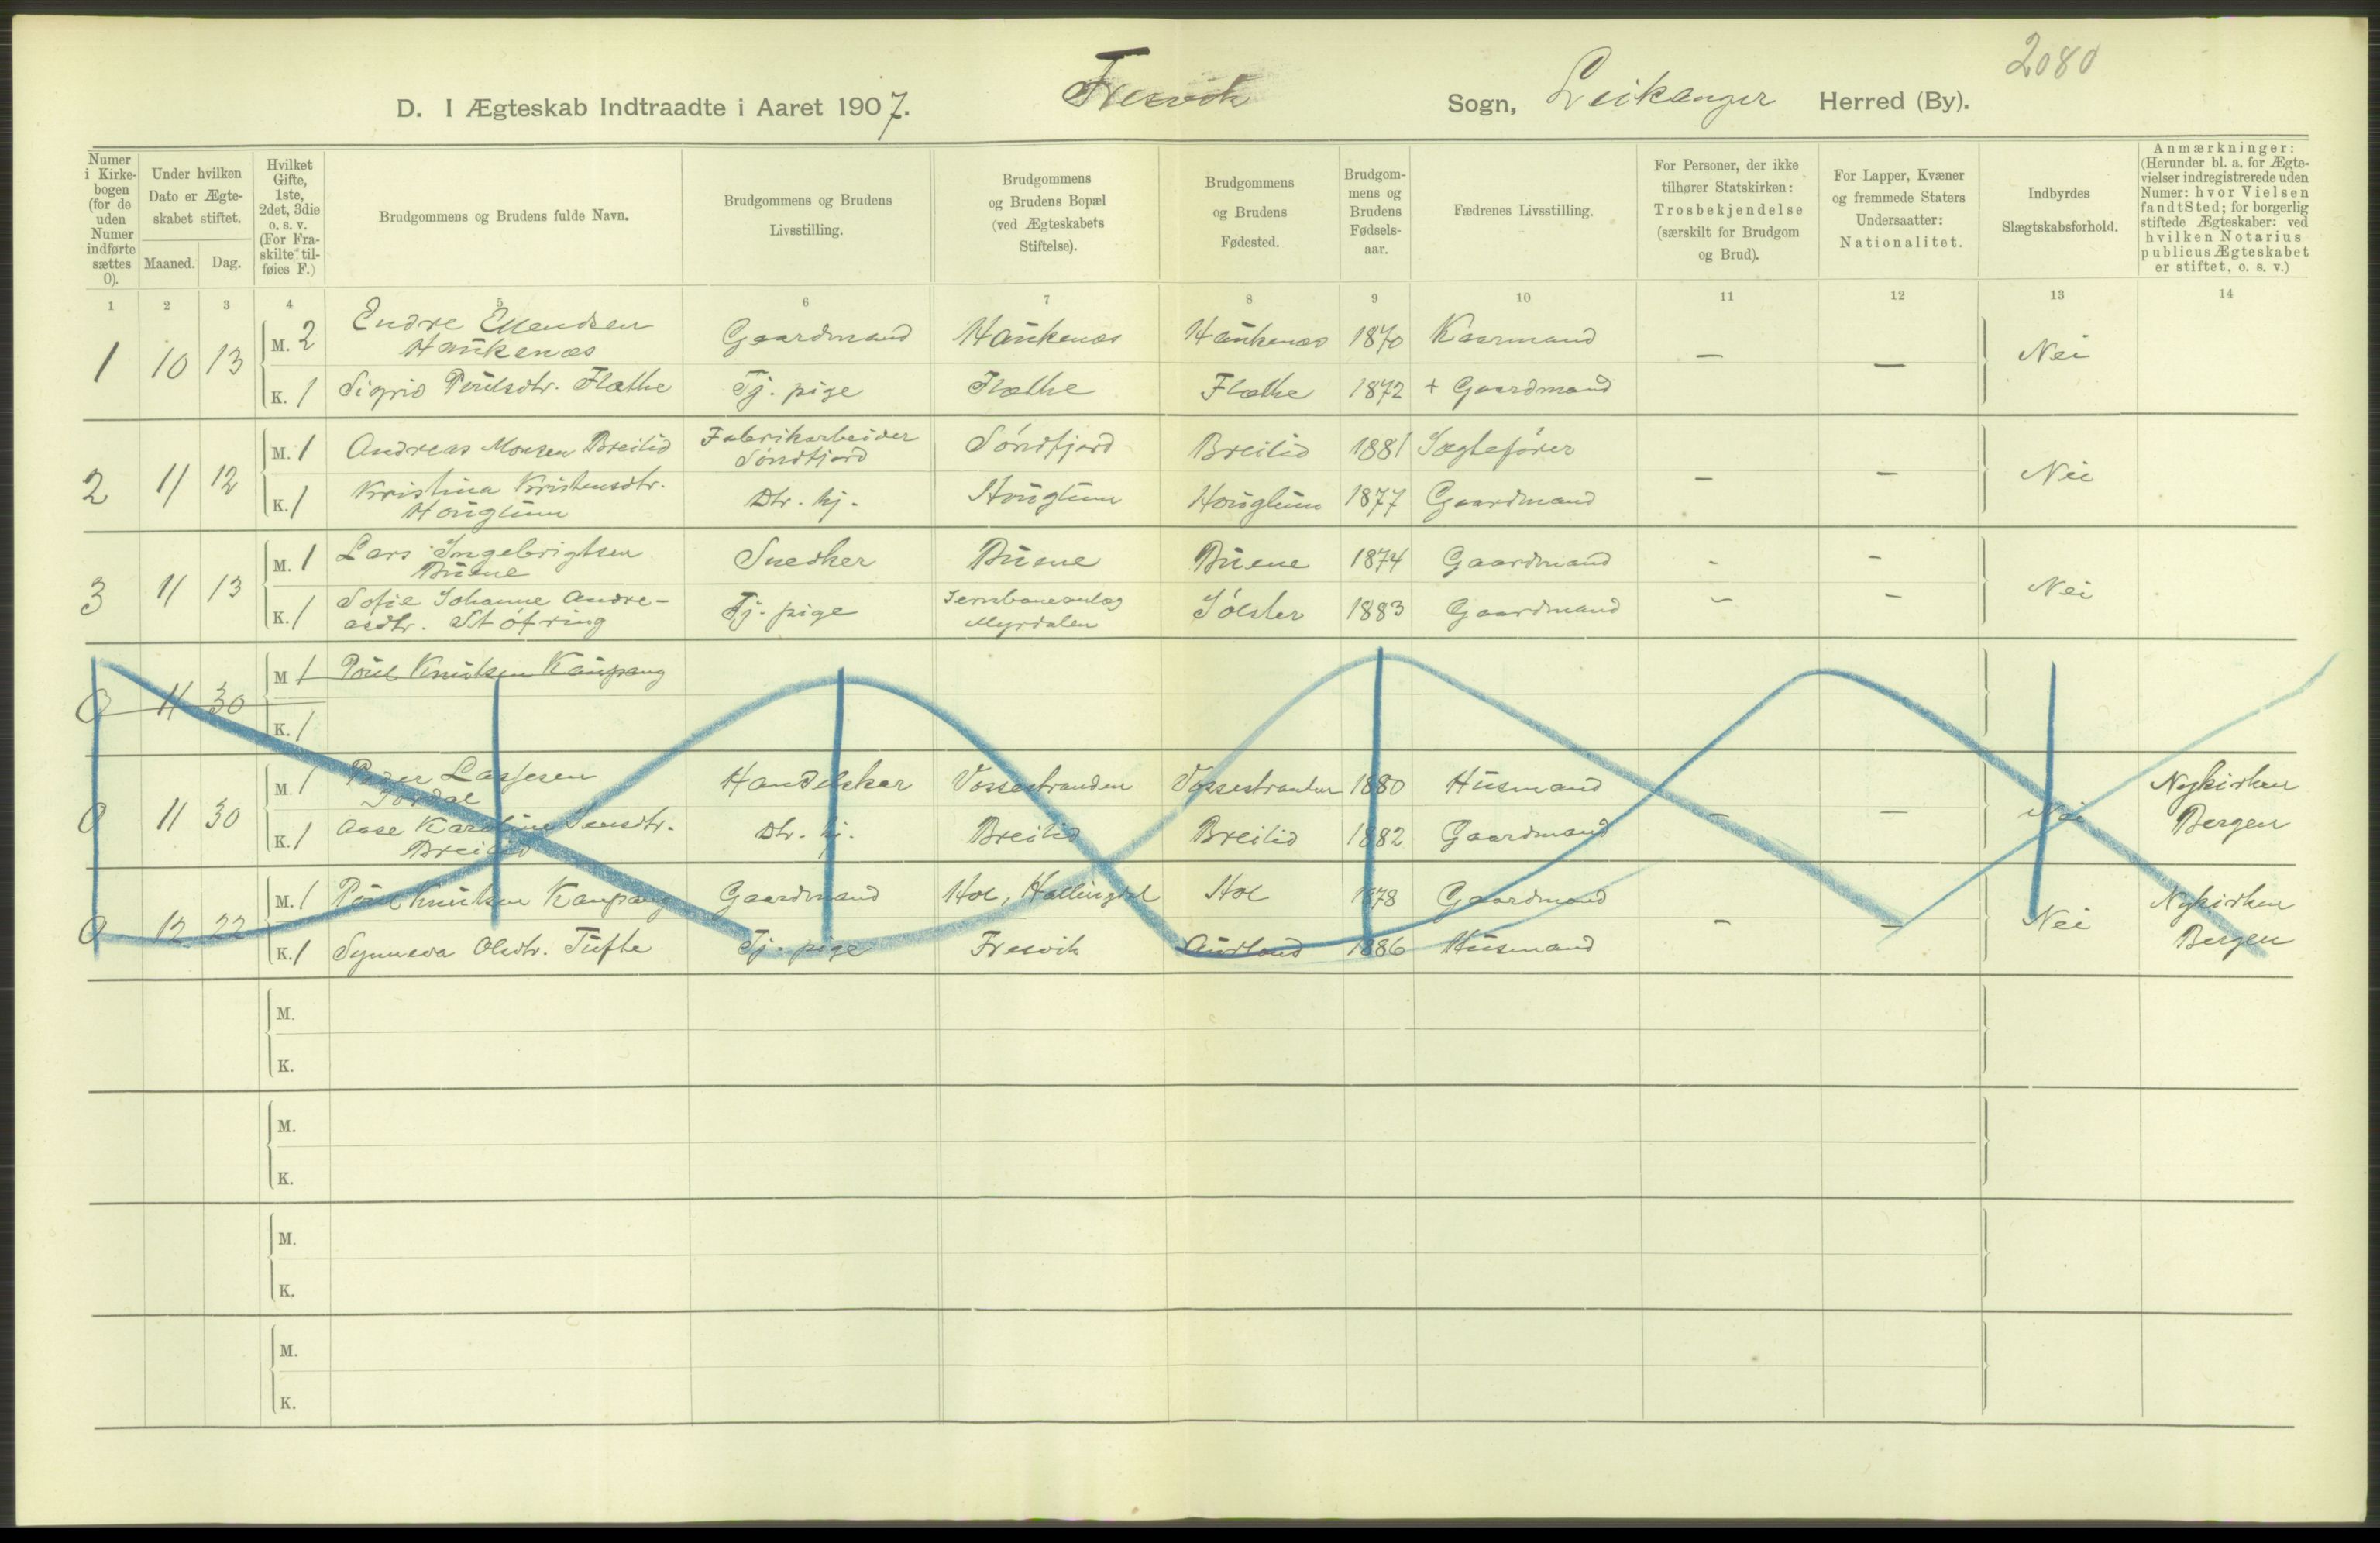 2080
D. I Ægteskab Indtraadte i Aaret 1907. Fresvik Sogn, Leikanger Herred (By).
Numer i Kirke-bogen (for de uden Numer indførte sættes 0).
Under hvilken Dato er Ægte-skabet stiftet.
Maaned. Dag.
Hvilket Gifte, 1ste, 2det, 3die o. s. v. (For Fra-skilte til-føies F.)
Brudgommens og Brudens fulde Navn.
Brudgommens og Brudens Livsstilling.
Brudgommens og Brudens Bopæl (ved Ægteskabets Stiftelse).
Brudgommens og Brudens Fødested.
Brudgom-mens og Brudens Fødsels-aar.
Fædrenes Livsstilling.
For Personer, der ikke tilhører Statskirken: Trosbekjendelse (særskilt for Brudgom og Brud).
For Lapper, Kvæner og fremmede Staters Undersaatter: Nationalitet.
Indbyrdes Slægtskabsforhold.
Anmærkninger: (Herunder bl. a. for Ægte-vielser indregistrerede uden Numer: hvor Vielsen fandt Sted; for borgerlig stiftede Ægteskaber: ved hvilken Notarius publicus Ægteskabet er stiftet, o. s. v.)
1 2 3 4 5 6 7 8 9 10 11 12 13 14
1 10 13 M. 2 Endre Ellendsen Haukenæs Gaardmand Haukenæs Haukenæs 1870 Kaarmand — — Nei
K. 1 Sigrid Poulsdtr. Flathe Tj. pige Flathe Flathe 1872 + Gaardmand
2 11 12 M. 1 Andreas Monsen Breilid Fabrikarbeider Søndfjord Søndfjord Breilid 1881 Jægtefører — — Nei
K. 1 Kristina Kristensdtr. Houglum Dtr. hj. Houglum Houglum 1877 Gaardmand
3 11 13 M. 1 Lars Ingebrigtsen Buene Snedker Buene Buene 1874 Gaardmand - - Nei
K. 1 Sofie Johanne Andre-asdtr. Støfring Tj. pige Jernbaneanlæg Myrdalen Jølster 1883 Gaardmand - -
0 11 30 M 1 Poul Knutsen Kaupang
K. 1
0 11 30 M. 1 Peder Lassesen Jordal Handelskar Vossestranden Vossestranden 1880 Husmand — — Nei Nykirken Bergen
K. 1 Aase Karoline Jensdtr. Breilid Dtr. hj. Breilid Breilid 1882 Gaardmand
0 12 22 M. 1 Poul Knutsen Kaupang Gaardmand Hol, Hallingdal Hol 1878 Gaardmand — — Nei Nykirken Bergen
K. 1 Synneva Olsdtr. Tufte Tj. pige Fresvik Aurland 1886 Husmand
M.
K.
M.
K.
M.
K.
M.
K.